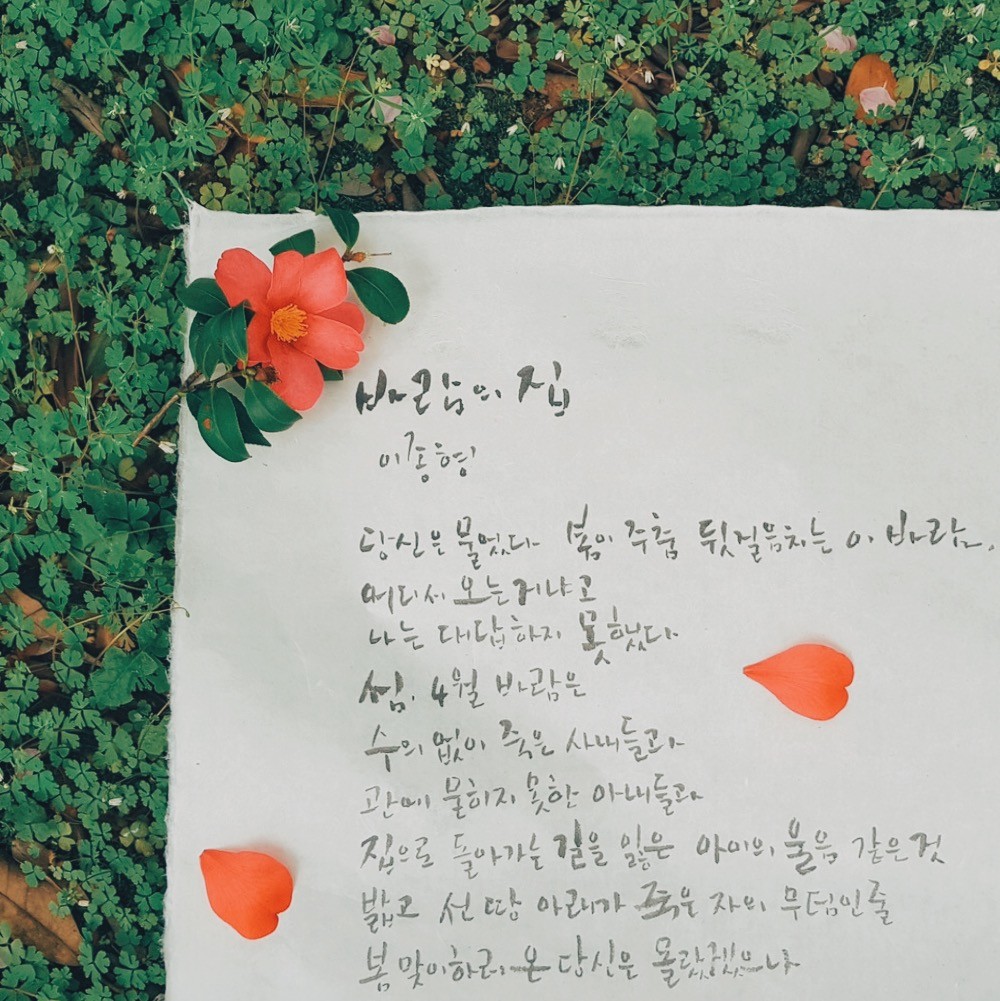 바람의 집
이종형
당신은 물었다 봄이 주춤 뒷걸음치는 이 바람,
어디서 오는거냐고
나는 대답하지 못했다
섬, 4월 바람은
수의 없이 죽은 사내들과
관에 묻히지 못한 아내들과
집으로 돌아가는 길을 잃은 아이의 울음 같은 것
밟고 선 땅 아래가 죽은 자의 무덤인줄
봄맞이하러 온 당신은 몰랐겠으나